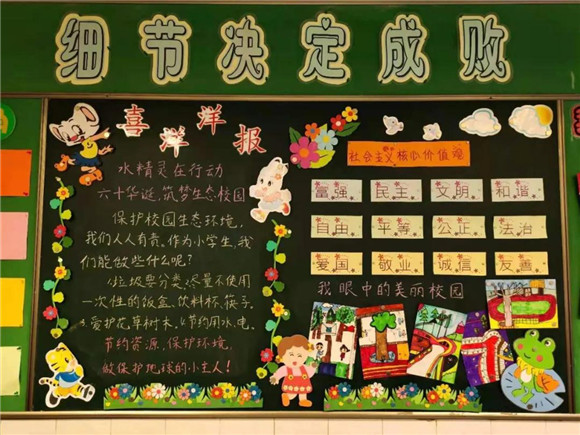 细节决定成败
喜洋洋报
水精灵在行动
六十华诞,筑梦生态校园
保护校园生态环境,
我们人人有责。作为小学生,我
们能做些什么呢?
垃圾要分类,尽量不使用
一次性的饭盒、饮料杯、筷子,
爱护花草树木,节约用水、电,
节约资源、保护环境,
做保护地球的小主人!
社会主义核心价值观
富强 民主 文明 和谐
自由 平等 公正 法治
爱国 敬业 诚信 友善
我眼中的美丽校园